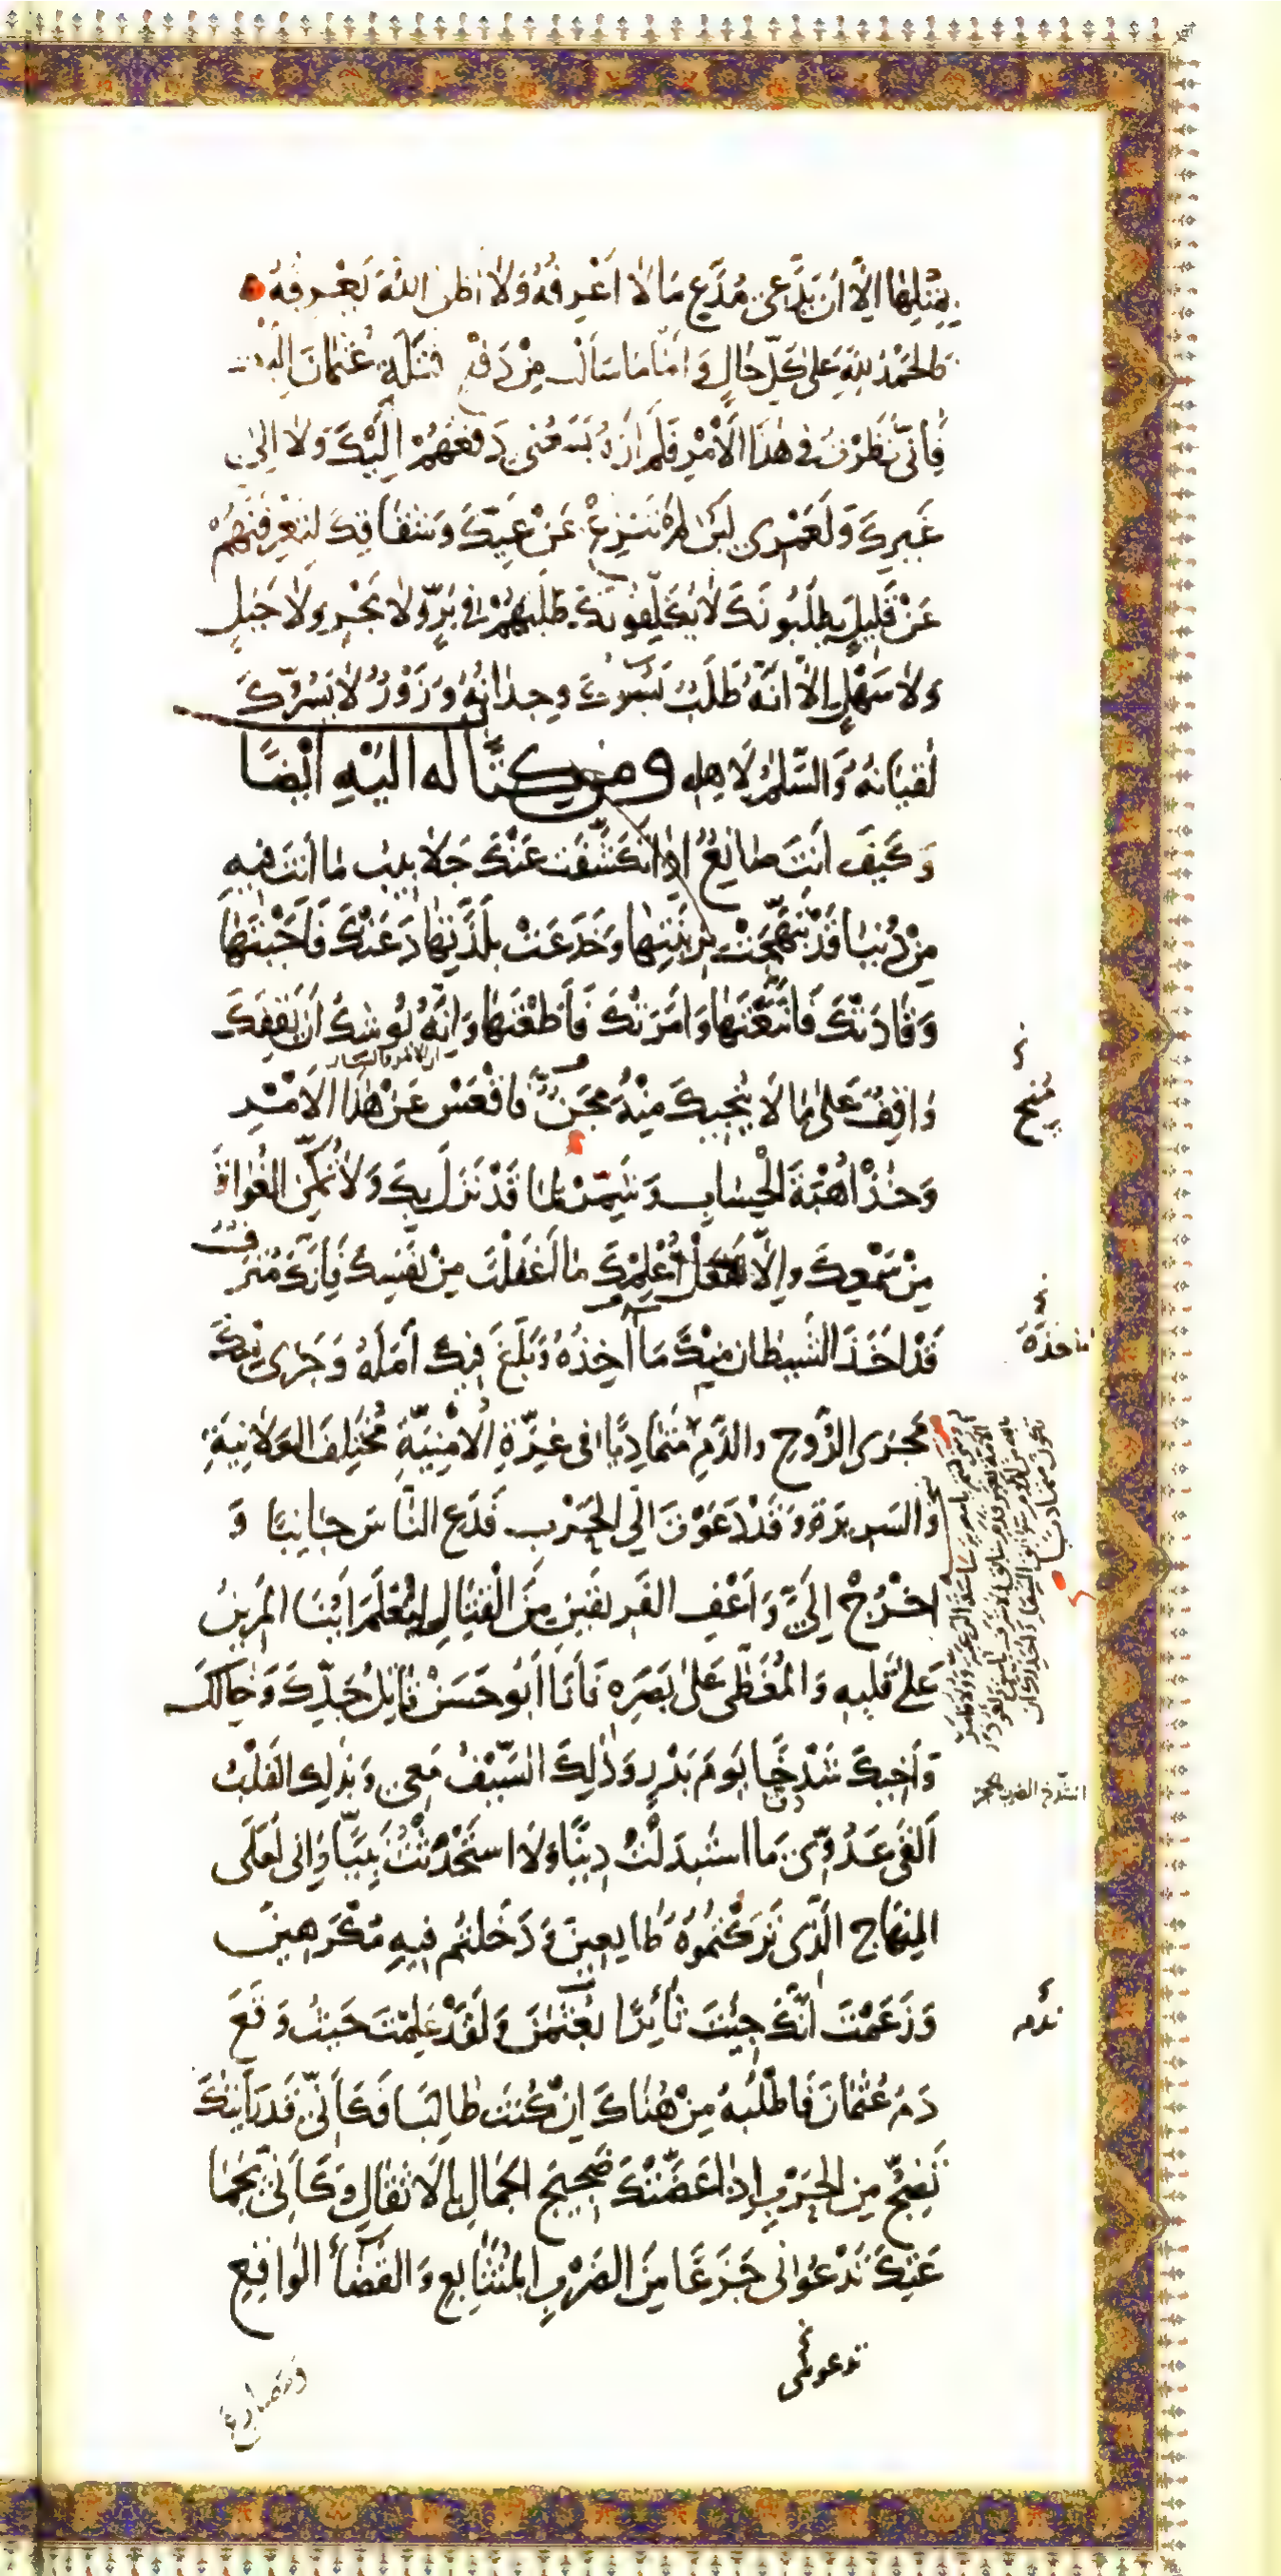 بِمِثْلِهَا اِلَّا اَنْ يَدَّعِيَ مُدَّعٍ مَا لَا اَعْرِفُهُ وَلَا اَظُنُّ اللّٰهَ يَعْرِفُهُ
وَالْحَمْدُ لِلّٰهِ عَلٰى كُلِّ حَالٍ وَ اَمَّا مَا سَاَلْتَ مِنْ دَفْعِ قَتَلَةِ عُثْمَانَ اِلَيْكَ
فَاِنِّي نَظَرْتُ فِي هٰذَا الْاَمْرِ فَلَمْ اَرَهُ يَسَعُنِي دَفْعُهُمْ اِلَيْكَ وَلَا اِلٰى
غَيْرِكَ وَلَعَمْرِي لَئِنْ لَمْ تَنْزِعْ عَنْ غَيِّكَ وَشِقَاقِكَ لَتَعْرِفَنَّهُمْ
عَنْ قَلِيلٍ يَطْلُبُونَكَ لَا يُكَلِّفُونَكَ طَلَبَهُمْ فِي بَرٍّ وَلَا بَحْرٍ وَلَا جَبَلٍ
وَلَا سَهْلٍ اِلَّا اَنَّهُ طَلَبٌ يَسُوءُكَ وِجْدَانُهُ وَ زَوْرٌ لَا يَسُرُّكَ
لُقْيَانُهُ وَالسَّلٰمُ لِاَهْلِهِ وَمِنْ كِتَابٍ لَهُ اِلَيْهِ اَيْضًا
وَكَيْفَ اَنْتَ صَانِعٌ اِذَا انْكَشَفَتْ عَنْكَ جَلَابِيبُ مَا اَنْتَ فِيهِ
مِنْ دُنْيَا قَدْ تَبَهَّجَتْ بِزِينَتِهَا وَخَدَعَتْ بِلَذَّتِهَا دَعَتْكَ فَاَجَبْتَهَا
وَقَادَتْكَ فَاتَّبَعْتَهَا وَاَمَرَتْكَ فَاَطَعْتَهَا وَاِنَّهُ يُوشِكُ اَنْ يَقِفَكَ
وَاقِفٌ عَلٰى مَا لَا يُنْجِيكَ مِنْهُ مِجَنٌّ فَاقْعَسْ عَنْ هٰذَا الْاَمْرِ
وَخُذْ اُهْبَةَ الْحِسَابِ وَشَمِّرْ لِمَا قَدْ نَزَلَ بِكَ وَلَا تُمَكِّنِ الْغُوَاةَ
مِنْ سَمْعِكَ وَاِلَّا تَفْعَلْ اُعْلِمْكَ مَا اَغْفَلْتَ مِنْ نَفْسِكَ فَاِنَّكَ مُتْرَفٌ
قَدْ اَخَذَ الشَّيْطَانُ مِنْكَ مَا اَخَذَهُ وَبَلَغَ فِيكَ اَمَلَهُ وَ جَرٰى مِنْكَ
مَجْرَى الرُّوحِ وَالدَّمِ مُتَمَادِيًا فِي غِرَّةِ الْاُمْنِيَّةِ مُخْتَلِفَ الْعَلَانِيَةِ
وَالسَّرِيرَةِ وَقَدْ دَعَوْتَ اِلَى الْحَرْبِ فَدَعِ النَّاسَ جَانِبًا وَ
اخْرُجْ اِلَيَّ وَ اَعْفِ الْفَرِيقَيْنِ مِنَ الْقِتَالِ لِيُعْلَمَ اَيُّنَا الْمَرِينُ
عَلٰى قَلْبِهِ وَ الْمُغَطّٰى عَلٰى بَصَرِهِ فَاَنَا اَبُو حَسَنٍ قَاتِلُ جَدِّكَ وَ خَالِكَ
وَ اَخِيكَ شَدْخًا يَوْمَ بَدْرٍ وَ ذٰلِكَ السَّيْفُ مَعِي وَ بِذٰلِكَ الْقَلْبِ
اَلْقٰى عَدُوِّي مَا اسْتَبْدَلْتُ دِينًا وَلَا اسْتَحْدَثْتُ نَبِيًّا وَاِنِّي لَعَلَى
الْمِنْهَاجِ الَّذِي تَرَكْتُمُوهُ طَايِعِينَ وَ دَخَلْتُمْ فِيهِ مُكْرَهِينَ
وَزَعَمْتَ اَنَّكَ جِئْتَ ثَائِرًا بِعُثْمٰنَ وَ لَقَدْ عَلِمْتَ حَيْثُ وَقَعَ
دَمُ عُثْمَانَ فَاطْلُبْهُ مِنْ هُنَاكَ اِنْ كُنْتَ طَالِبًا فَكَاَنِّي قَدْ رَاَيْتُكَ
تَضِجُّ مِنَ الْحَرْبِ اِذَا عَضَّتْكَ ضَجِيجَ الْجِمَالِ بِالْاَثْقَالِ وَ كَاَنِّي بِجَمَا
عَتِكَ تَدْعُوانِي جَزَعًا مِنَ الضَّرْبِ الْمُتَتَابِعِ وَ الْقَضَآءِ الْوَاقِعِ
تدعونى
وَمَصَارِعَ
مُنْجٍ
ماخذهُ
الشدخ الضرب بالحجر